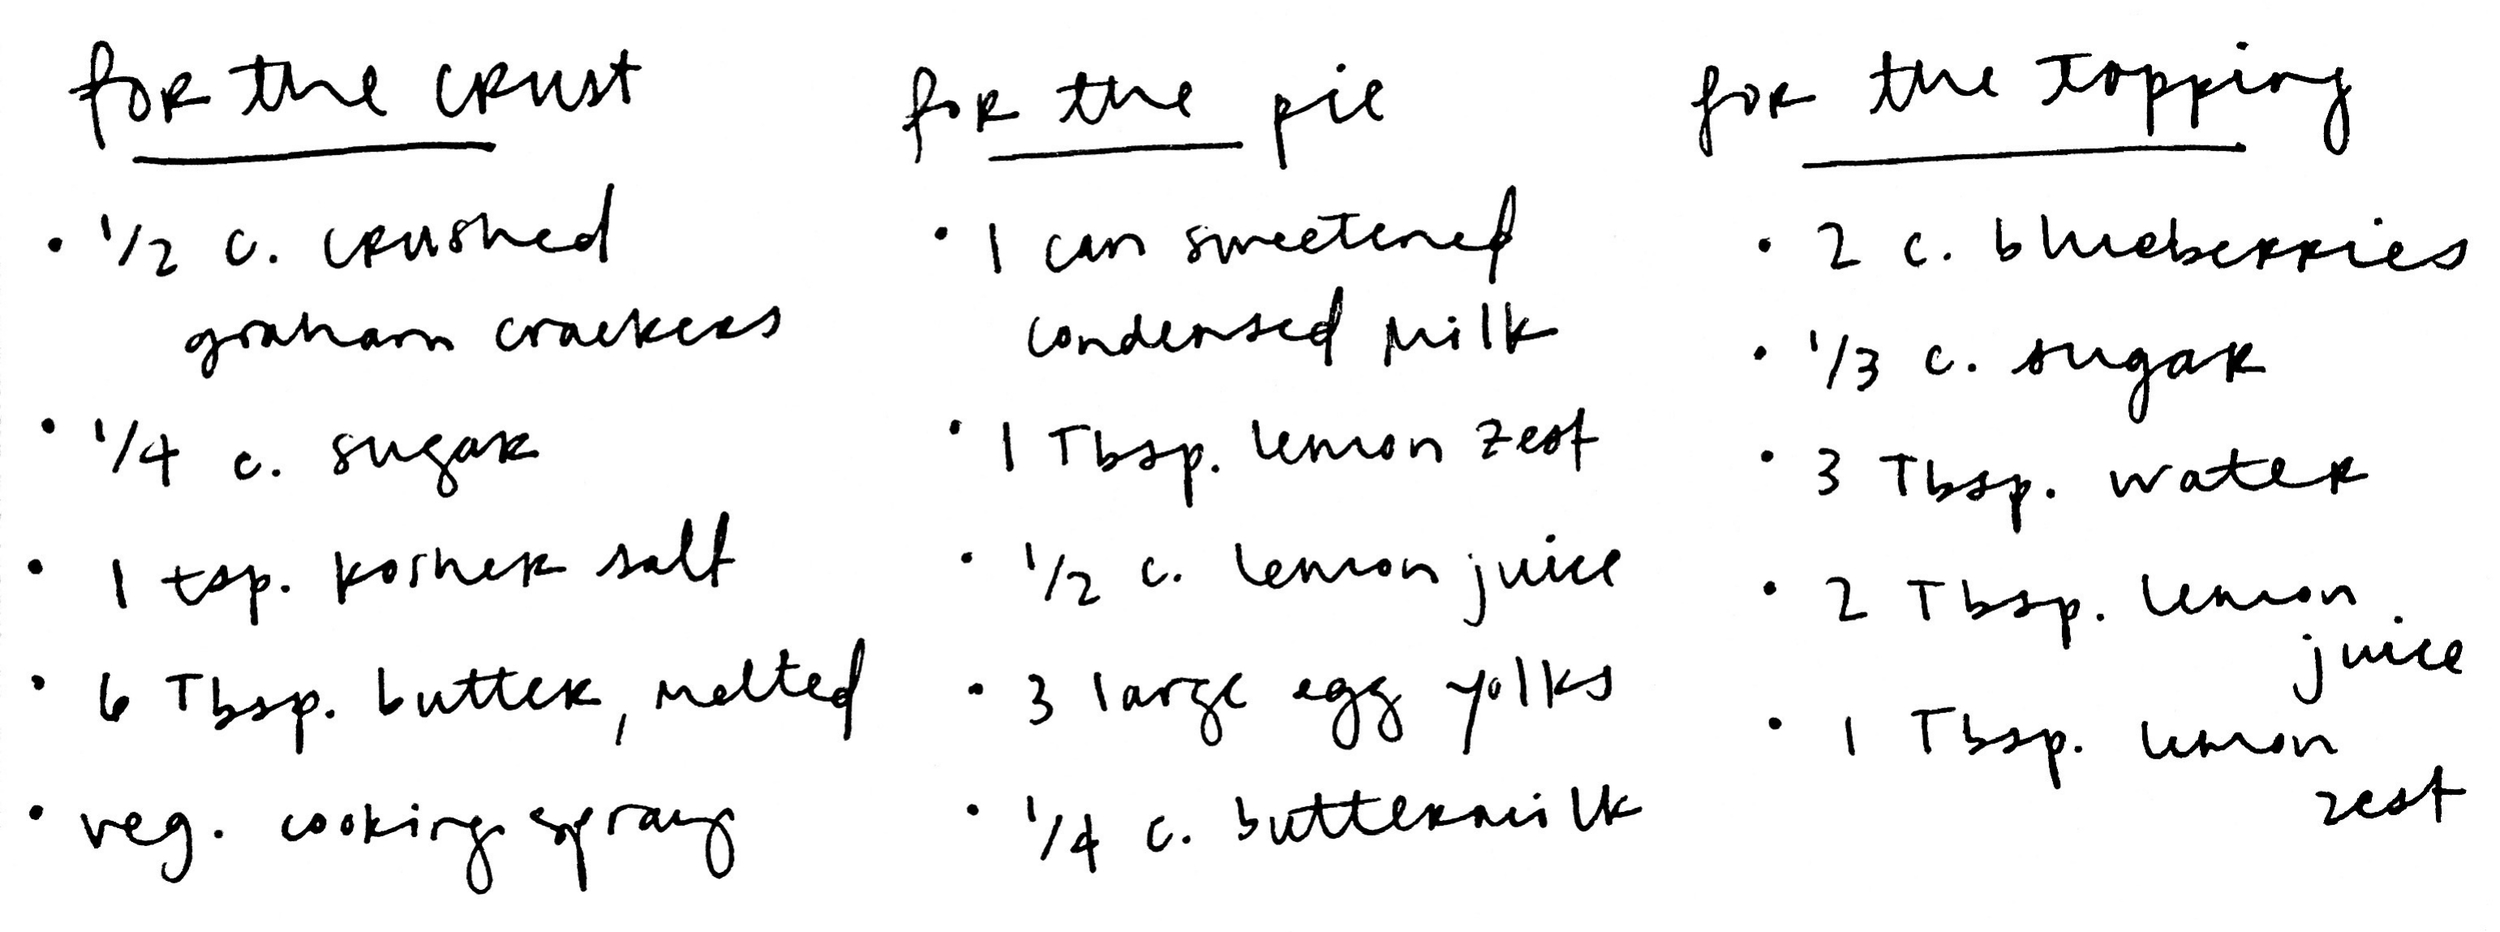 for the crust
• 1/2 c. crushed
graham crackers
• 1/4 c. sugar
• 1 tsp. kosher salt
• 6 Tbsp. butter, melted
• veg. cooking spray
for the pie
• 1 can sweetened
condensed milk
• 1 Tbsp. lemon zest
• 1/2 c. lemon juice
• 3 large egg yolks
• 1/4 c. buttermilk
for the topping
• 2 c. blueberries
• 1/3 c. sugar
• 3 Tbsp. water
• 2 Tbsp. lemon
juice
• 1 Tbsp. lemon
zest